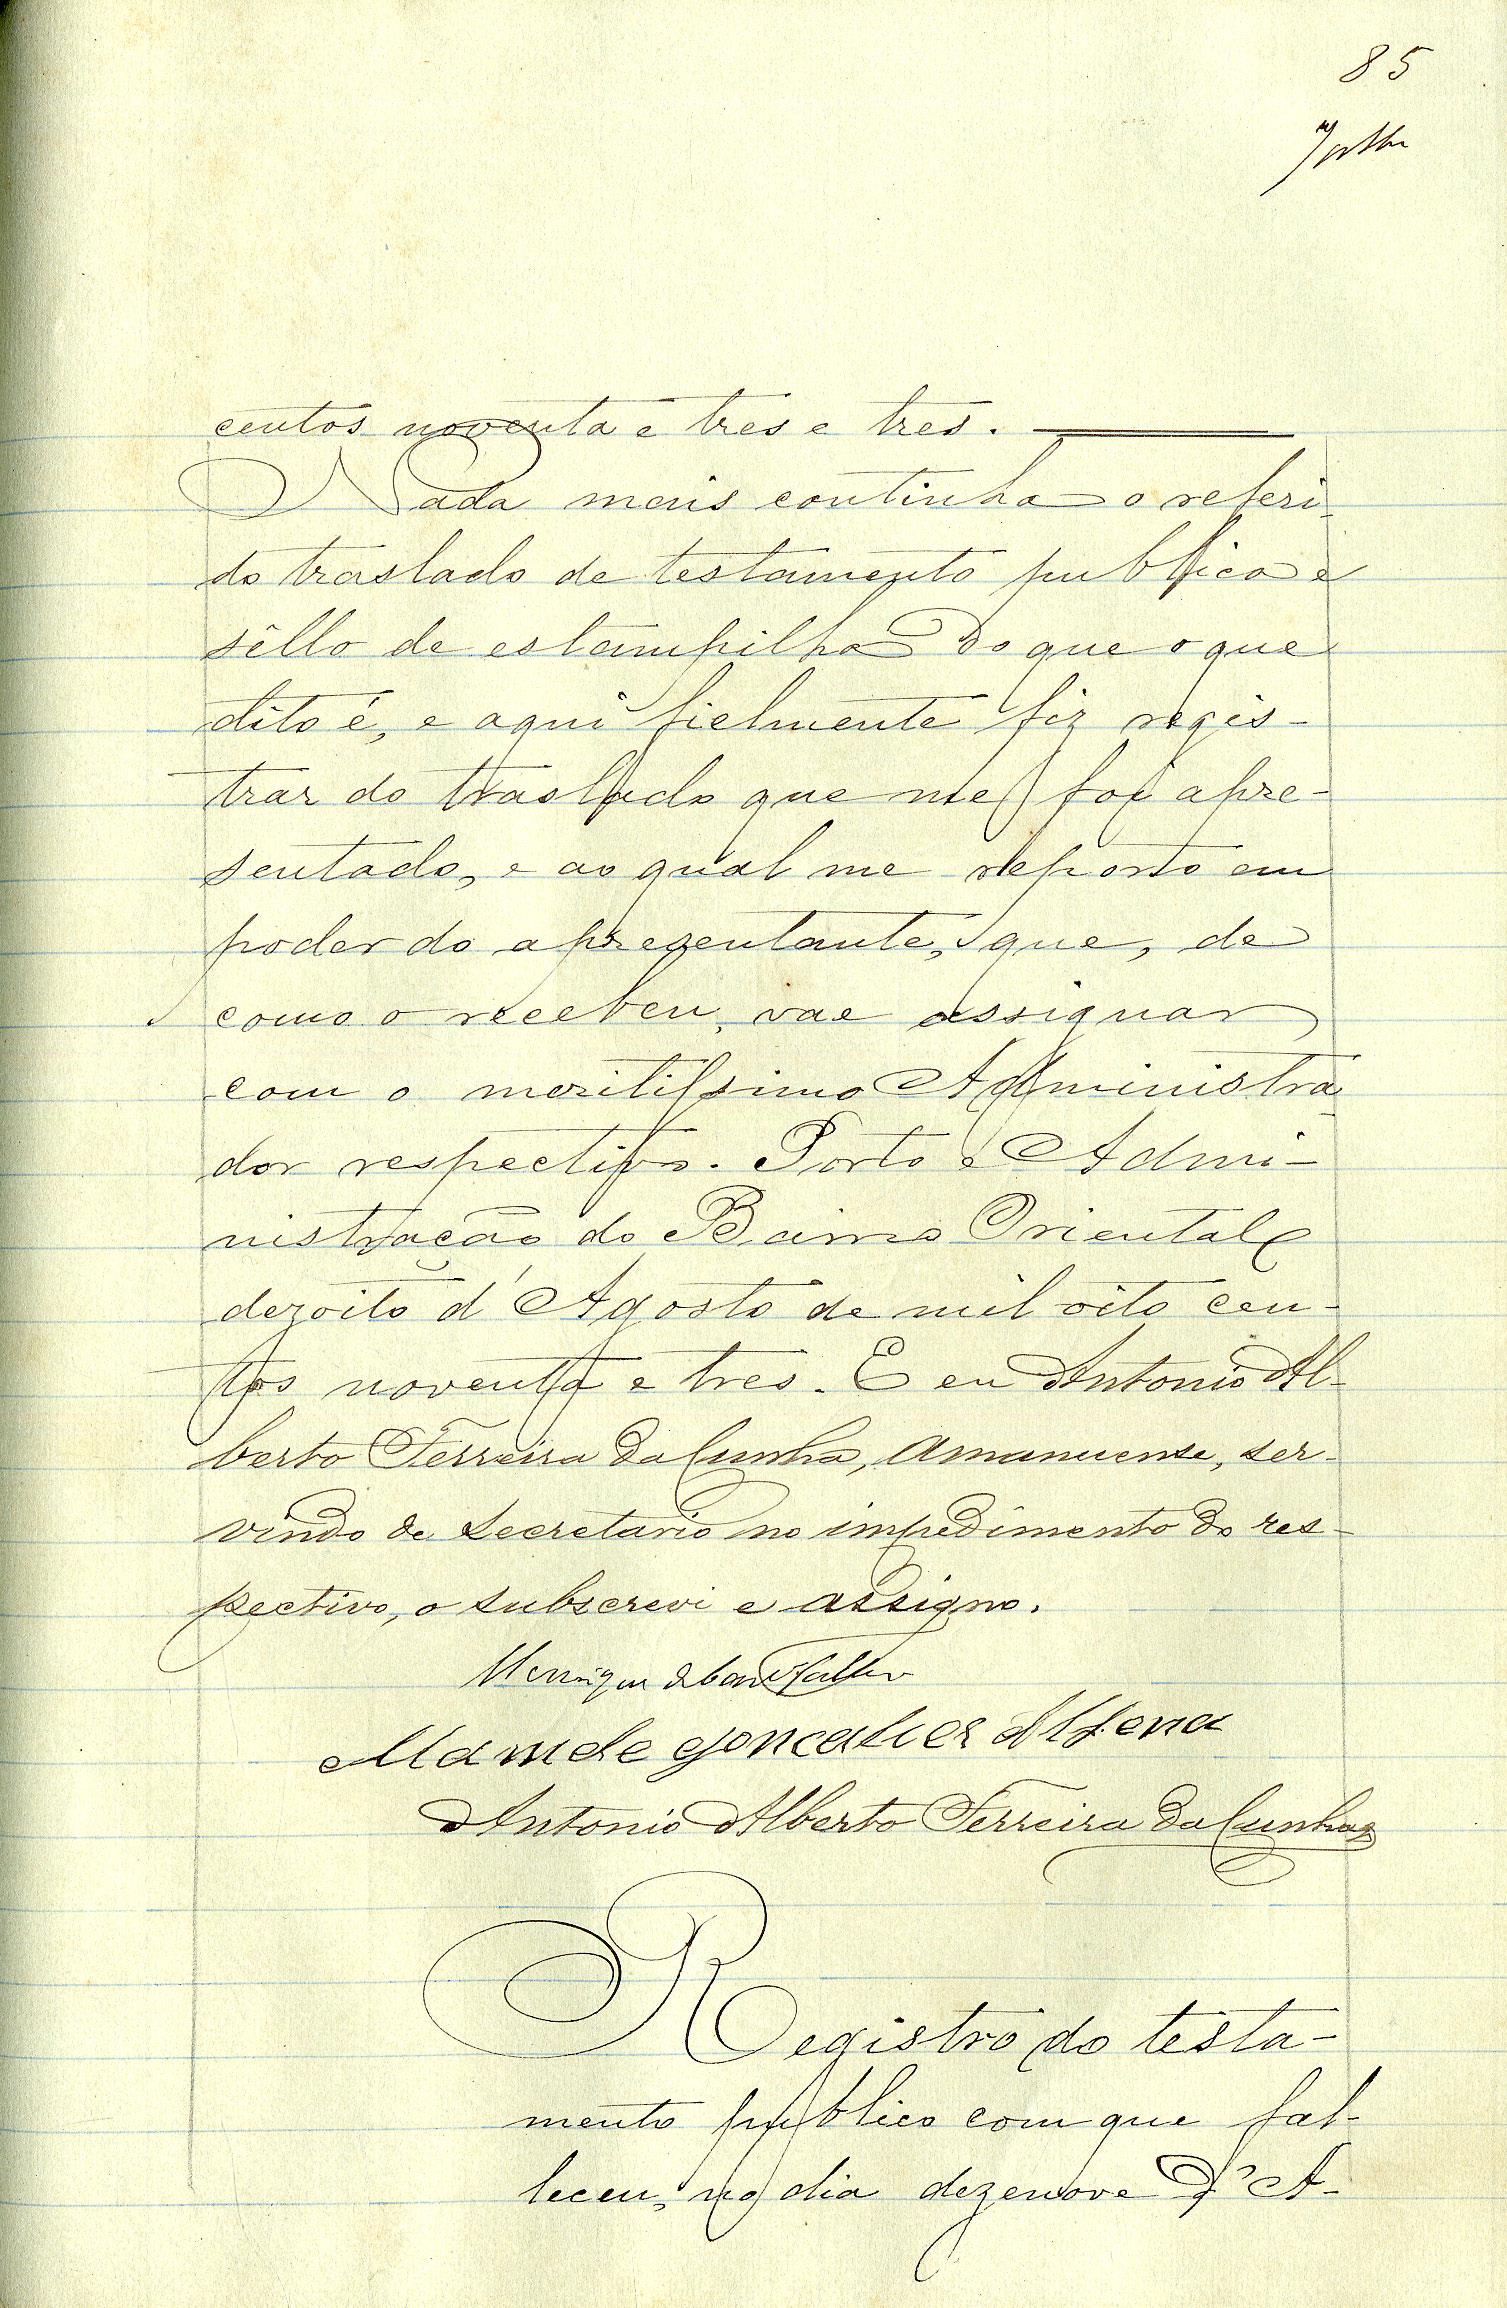 85
centos noventa e tres e tres.
Nada mais continha o referi-
do traslado de testamento publico e
sêllo de estampilha Do que o que
dito é, e aqui fielmente fiz regis-
trar do traslado que me foi apre-
sentado, e ao qual me reporto em
poder do aprezentante, que, de
como o recebeu, vae assignar
com o meritissimo Administra-
dor respectivo. Porto e Admi-
nistração do Bairro Oriental
dezoito d'Agosto de mil oito cen-
tos noventa e tres. E eu Antonio Al-
berto Ferreira da Cunha, Amanuense, ser-
vindo de Secretario no impedimento do res-
pectivo, o subscrevi e assigno.
Henrique de
Mamede Goncalves Alfena
Antonio Alberto Ferreira da Cunha
Registro do testa-
mento publico com que fal-
leceu, no dia dezenove d'A-